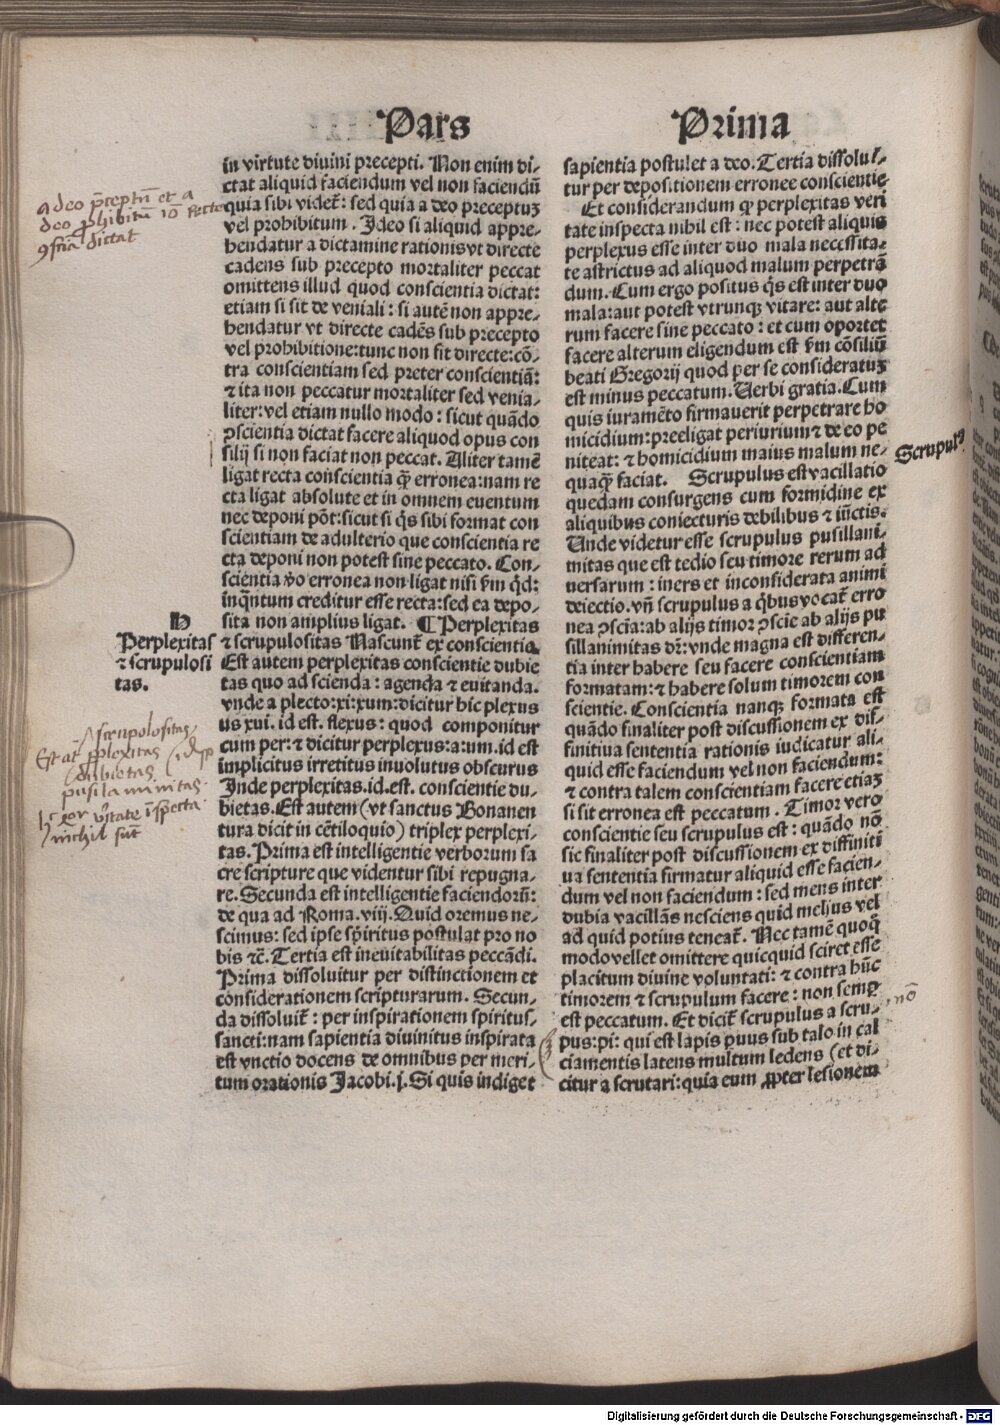 Pars
Prima
in virtute diuini precepti. Non enim di-
ctat aliquid faciendum vel non faciendū
quia sibi videt᷑: sed quia a deo preceptuꝫ
vel prohibitum. Ideo si aliquid appre-
hendatur a dictamine rationis vt directe
cadens sub precepto mortaliter peccat
omittens illud quod conscientia dictat:
etiam si sit de veniali: si autē non appre-
hendatur vt directe cadēs sub precepto
vel prohibitione: tunc non fit directe: cō-
tra conscientiam sed preter conscientiā:
⁊ ita non peccatur mortaliter sed venia-
liter: vel etiam nullo modo: sicut quādo
ꝯscientia dictat facere aliquod opus con
silij si non faciat non peccat. Aliter tamē
ligat recta conscientia q̄ꝫ erronea: nam re
cta ligat absolute et in omnem euentum
nec deponi pōt: sicut si q̇s sibi format con
scientiam de adulterio que conscientia re
cta deponi non potest sine peccato. Con-
scientia ṽo erronea non ligat nisi ẜm q̇d:
inq̄ntum creditur esse recta: sed ea depo-
sita non amplius ligat. ¶ Perplexitas
⁊ scrupulositas Nascunt᷑ ex conscientia
Est autem perplexitas conscientie dubie
tas quo ad scienda: agenda ⁊ euitanda.
vnde a plecto: xi: xum: dicitur hic plexus
us xui. id est. flexus: quod componitur
cum per: ⁊ dicitur perplexus: a: um. id est
implicitus irretitus inuolutus obscurus
Inde perplexitas. id. est. conscientie du-
bietas. Est autem (vt sanctus Bonauen
tura dicit in cētiloquio) triplex perplexi-
tas. Prima est intelligentie verborum sa
cre scripture que videntur sibi repugna-
re. Secunda est intelligentie faciendoꝝ:
de qua ad Roma. viij. Quid oremus ne-
scimus: sed ipse spiritus postulat pro no
bis ⁊c̄. Tertia est ineuitabilitas peccādi.
Prima dissoluitur per distinctionem et
considerationem scripturarum. Secun-
da dissoluit᷑: per inspirationem spiritus
sancti: nam sapientia diuinitus inspirata
est vnctio docens de omnibus per meri-
tum orationis Jacobi. j. Si quis indiget
sapientia postulet a deo. Tertia dissolui-
tur per depositionem erronee conscientie
Et considerandum ꝙ perplexitas veri
tate inspecta nihil est: nec potest aliquis
perplexus esse inter duo mala necessita-
te astrictus ad aliquod malum perpetrā
dum. Cum ergo positus q̇s est inter duo
mala: aut potest vtrunqꝫ vitare: aut alte
rum facere sine peccato: et cum oportet
facere alterum eligendum est ẜm cōsiliū
beati Gregorij quod per se consideratuꝫ
est minus peccatum. Verbi gratia. Cum
quis iuramēto firmauerit perpetrare ho
micidium: preeligat periurium ⁊ de eo pe
niteat: ⁊ homicidium maius malum ne-
quaq̄ꝫ faciat. Scrupulus est vacillatio
quedam consurgens cum formidine ex
aliquibus coniecturis debilibus ⁊ iūctis.
Unde videtur esse scrupulus pusillani-
mitas que est tedio seu timore rerum ad
uersarum: iners et inconsiderata animi
deiectio. vn̄ scrupulus a q̇bus vocat᷑ erro
nea ꝯscīa: ab alijs timor ꝯscīe ab alijs pu
sillanimitas dr̄: vnde magna est differen-
tia inter habere seu facere conscientiam
formatam: ⁊ habere solum timorem con
scientie. Conscientia nanqꝫ formata est
quādo finaliter post discussionem ex dif-
finitiua sententia rationis iudicatur ali-
quid esse faciendum vel non faciendum:
⁊ contra talem conscientiam facere etiaꝫ
si sit erronea est peccatum. Timor vero
conscientie seu scrupulus est: quādo nō
sic finaliter post discussionem ex diffiniti
ua sententia firmatur aliquid esse facien-
dum vel non faciendum: sed mens inter
dubia vacillās nesciens quid melius vel
ad quid potius teneat᷑. Nec tamē quoq̄
modo vellet omittere quicquid sciret esse
placitum diuine voluntati: ⁊ contra hūc
timorem ⁊ scrupulum facere: non semꝑ
est peccatum. Et dicit᷑ scrupulus a scru-
pus: pi: qui est lapis ꝑuus sub talo in cal
ciamentis latens multum ledens (et di-
citur a scrutari: quia eum ꝓpter lesionem
a deo p̄ceptū et a
deo ꝓhibitū iō recte
ꝯsciā dictat
H
Perplexitas
⁊ scrupulosi
tas.
scrupolositas
Est at ꝑplexitas
dubietas
pusilanimitas
vītate īspecta
nichil sūt
Scrupulꝰ
nō
Digitalisierung gefördert durch die Deutsche Forschungsgemeinschaft - DFG